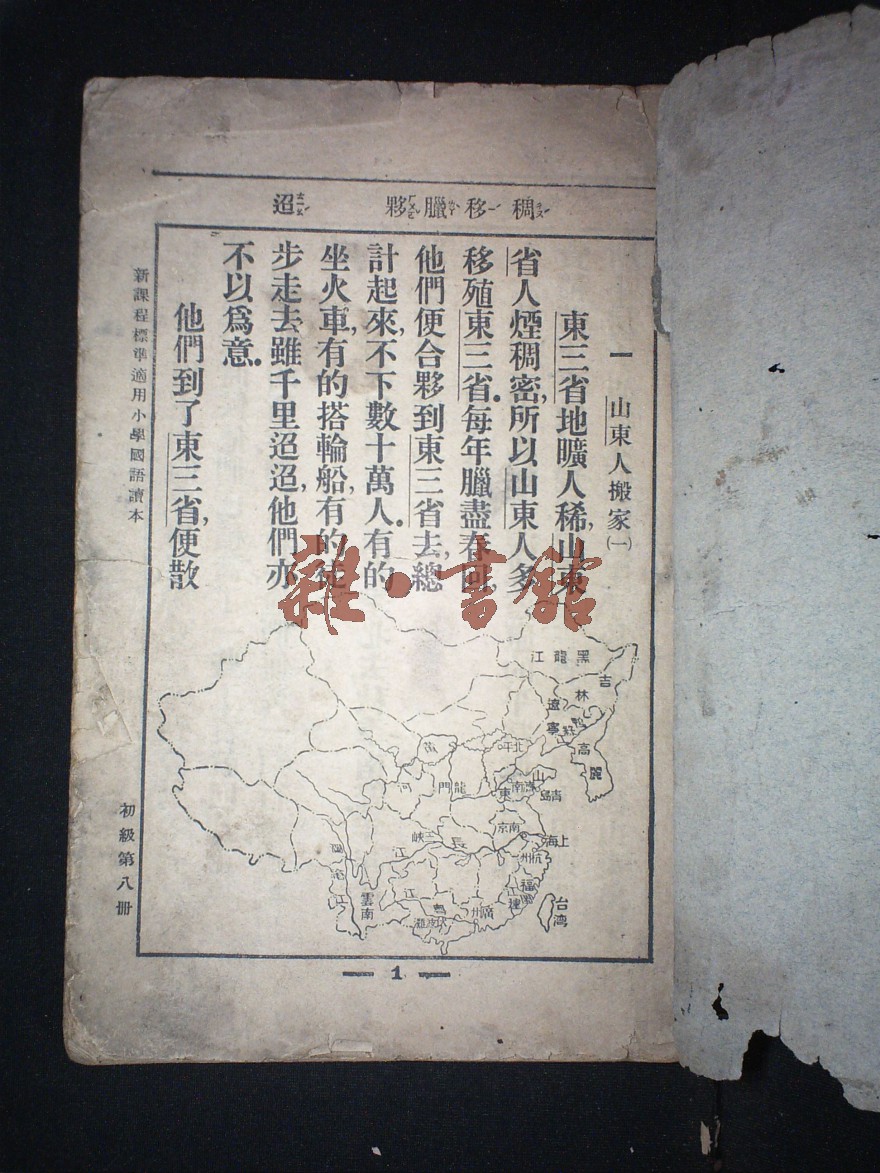 稠移臘夥 迢
一 山東人搬家(一)
東三省地曠人稀,山東
省人煙稠密,所以山東人多
移殖東三省。每年臘盡春回,
他們便合夥到東三省去,總
計起來,不下數十萬人。有的
坐火車,有的搭輪船,有的徒
步走去,雖千里迢迢,他們亦
不以爲意。
他們到了東三省,便散
新課程標準適用小學國語讀本
初級第八冊
雜·書館
黑龍江
吉林
遼寧
高麗
北平
山東
濟南
青島
龍門
河
南京
上海
杭州
三峽
長
江
福建
廣州
雲南
台湾
1